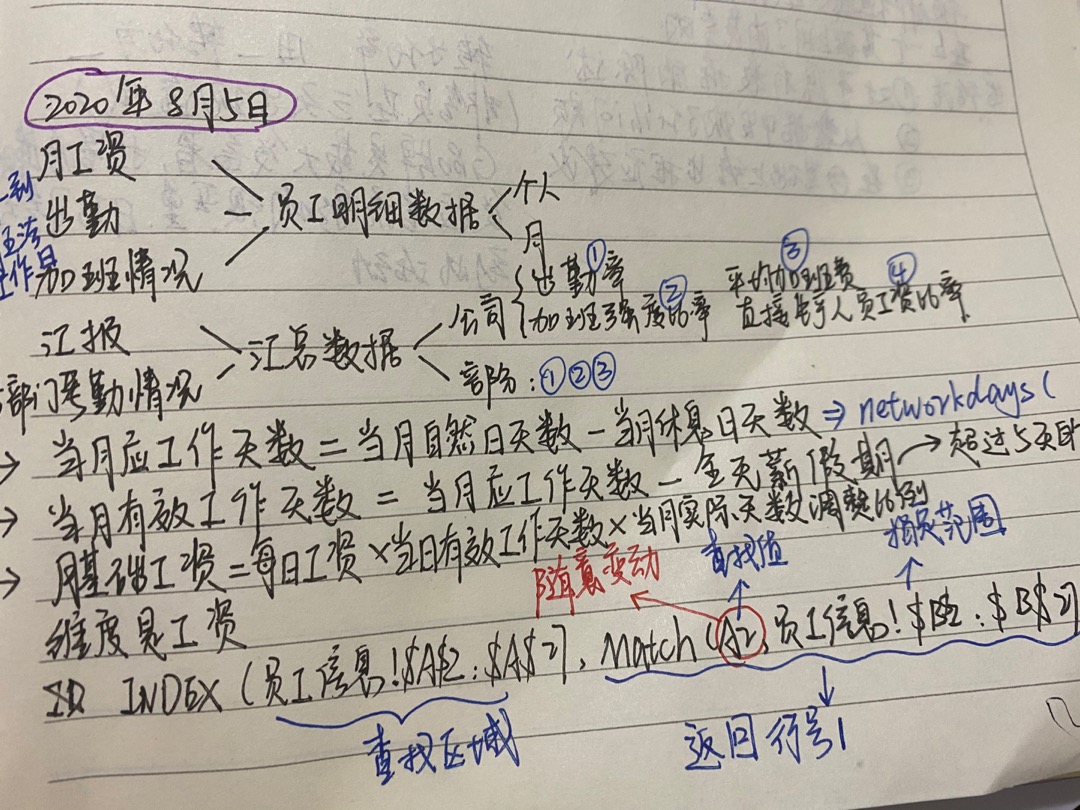 2020年8月5日
月工资
出勤
加班情况
员工明细数据
个人
月
汇报
部门考勤情况
汇总数据
公司
出勤率 ①
加班强度比率 ②
平均加班费 ③
直接生手人员工资比率 ④
部份：①②③
→ 当月应工作天数 = 当月自然日天数 - 当月休息日天数 ⇒ networkdays(
→ 当月有效工作天数 = 当月应工作天数 - 全无薪假期 → 超过5天
→ 月基础工资 = 每日工资 × 当日有效工作天数 × 当月实际天数调整比例
随意变动
查找值
指定范围
维度是工资
INDEX (员工信息!$A$2:$A$27, Match (A2, 员工信息!$B$2:$B$27
查找区域
返回行号1